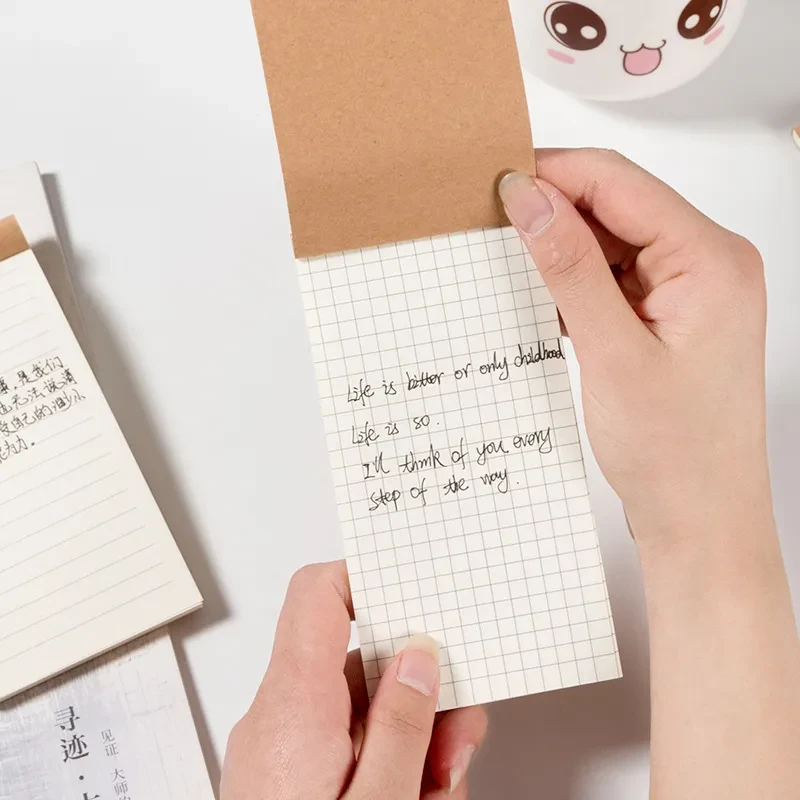 Life is bitter or only childhood
Life is so.
I'll think of you every
step of the way.
是我们
无法说清
自己的
为力.
寻迹·
见证 大师的